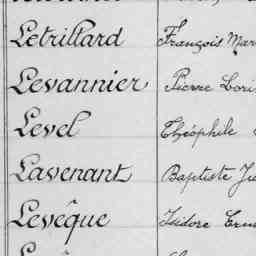 Letrillard François Mar
Levannier Pierre Loui
Level Théophile
Lavenant Baptiste Ju
Levêque Isidore Ern